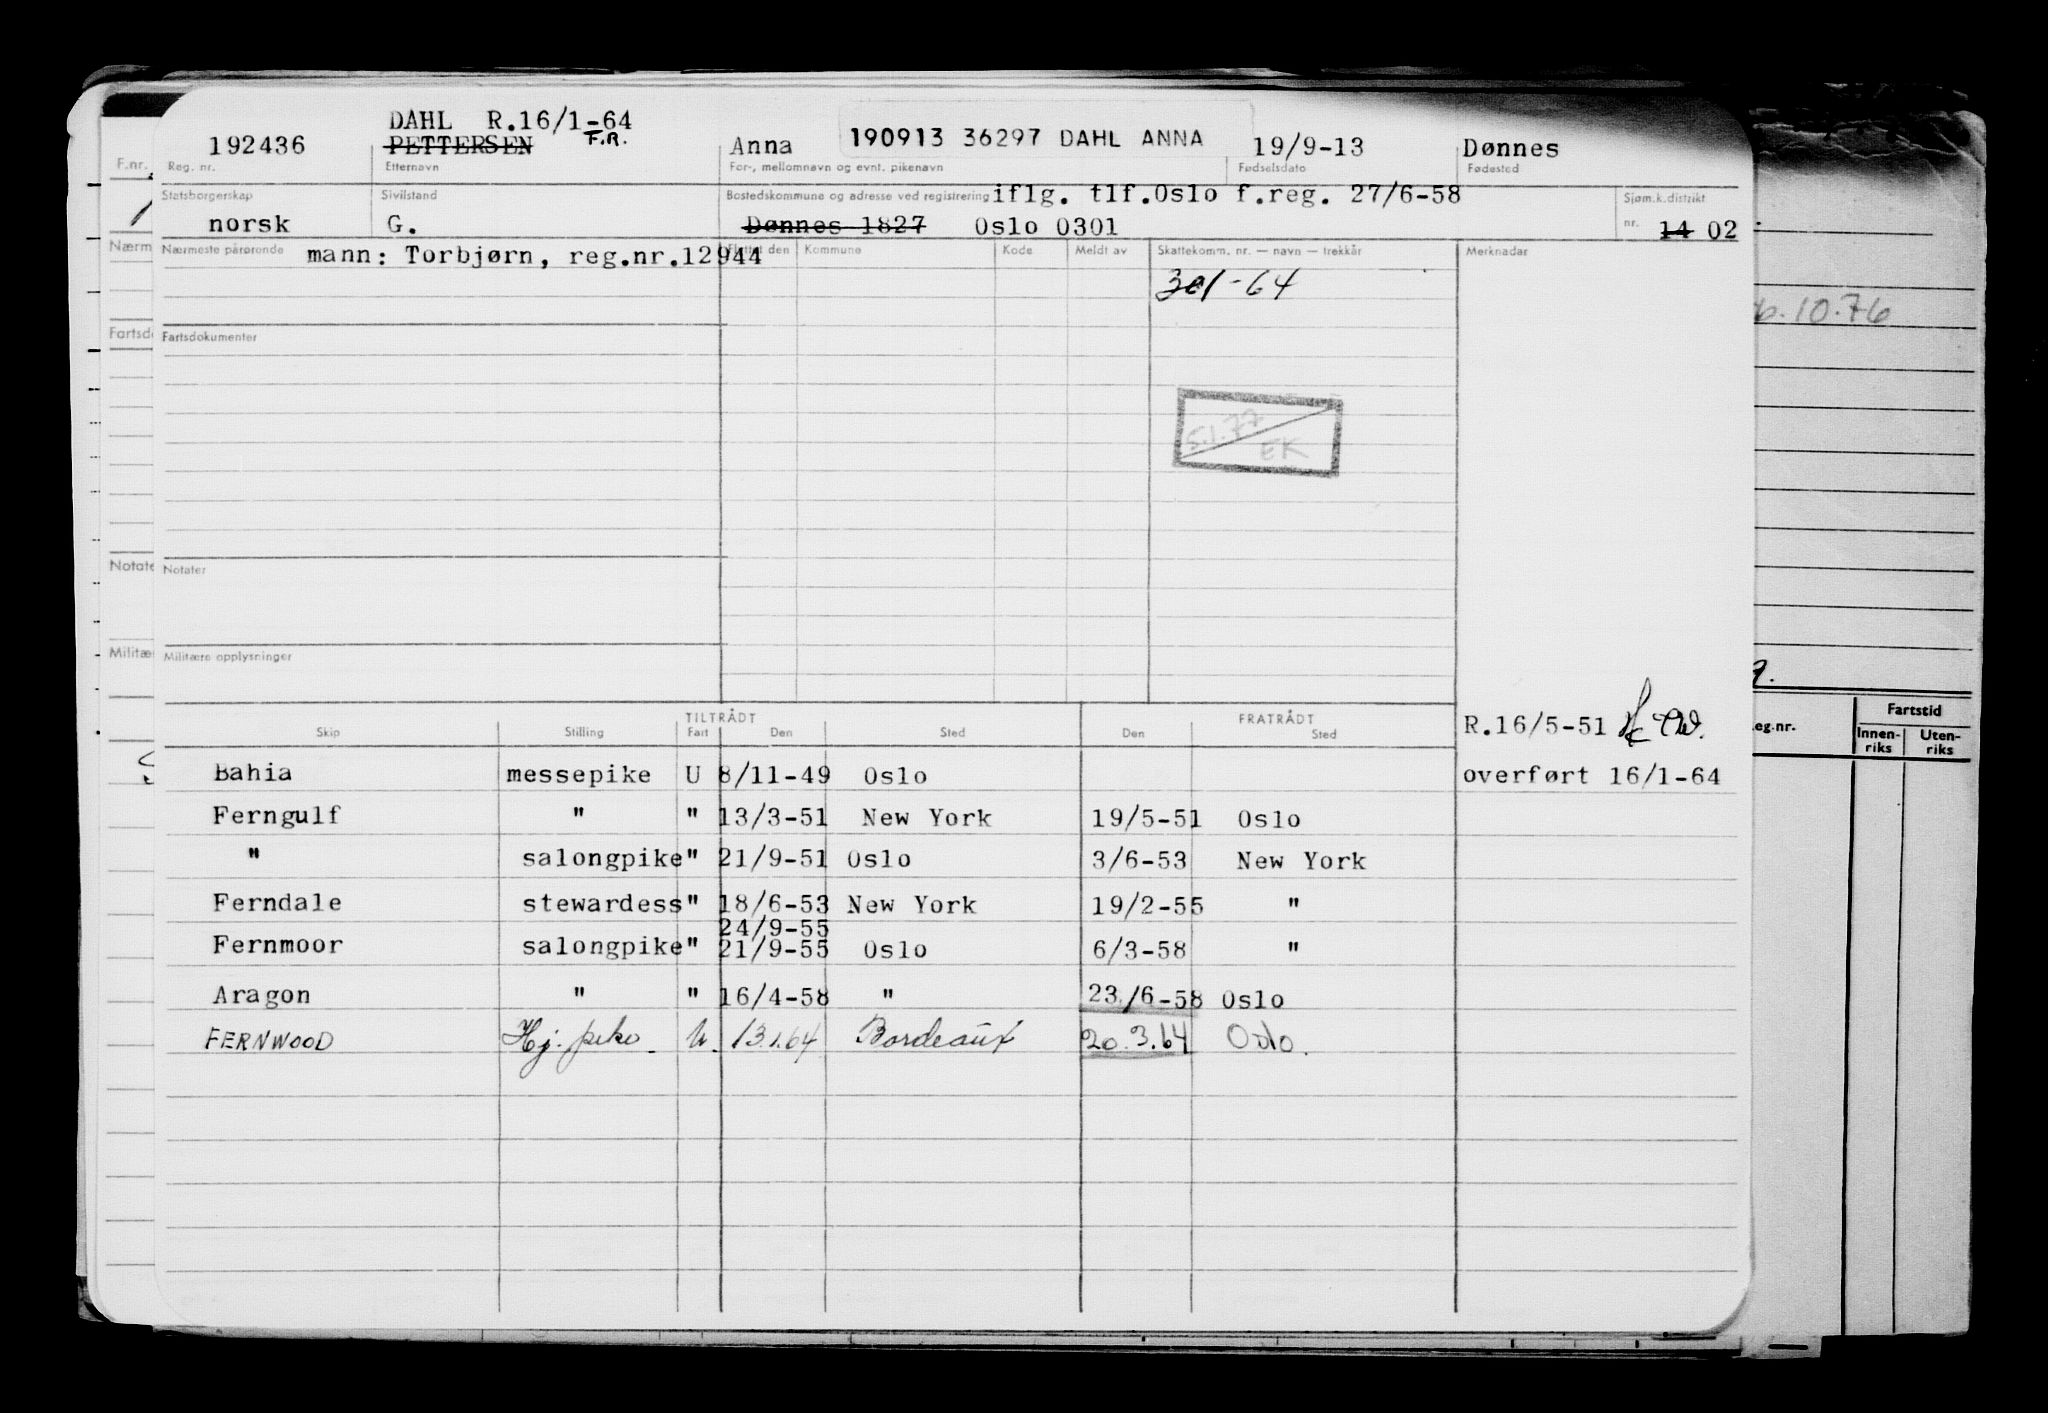 DAHL R.16/1-64
192436 PETTERSEN F.R. Anna 190913 36297 DAHL ANNA 19/9-13 Dønnes
F.nr. Reg. nr. Etternavn For-, mellomnavn og evnt. pikenavn Fødselsdato Fødested
Statsborgerskap Sivilstand Bostedskommune og adresse ved registrering iflg. tlf.Oslo f.reg. 27/6-58 Sjøm.k.distrikt
norsk G. Dønnes 1827 Oslo 0301 nr. 14 02
Nærm Nærmeste pårørende mann: Torbjørn, reg.nr.12944 Flyttet den Kommune Kode Meldt av Skattekomm. nr. — navn — trekkår Merknader
301-64
.10.76
Fartsdo Fartsdokumenter
5.1.77
EK
Notate Notater
Militæ Militære opplysninger
TILTRÅDT FRATRÅDT R.16/5-51 Fartstid
Skip Stilling Fart Den Sted Den Sted eg.nr. Innen-riks Uten-riks
Bahia messepike U 8/11-49 Oslo overført 16/1-64
Ferngulf " " 13/3-51 New York 19/5-51 Oslo
" salongpike " 21/9-51 Oslo 3/6-53 New York
Ferndale stewardess " 18/6-53 New York 19/2-55 "
24/9-55
Fernmoor salongpike " 21/9-55 Oslo 6/3-58 "
Aragon " " 16/4-58 " 23/6-58 Oslo
FERNWOOD Hj. pike U. 13.1.64 Bordeaux 20.3.64 Oslo.